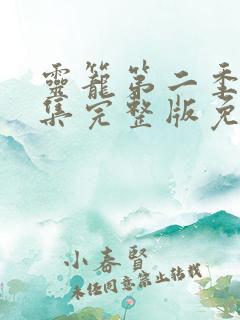 靈籠第二季
集完整版免
小春賢
未経同意禁止转载